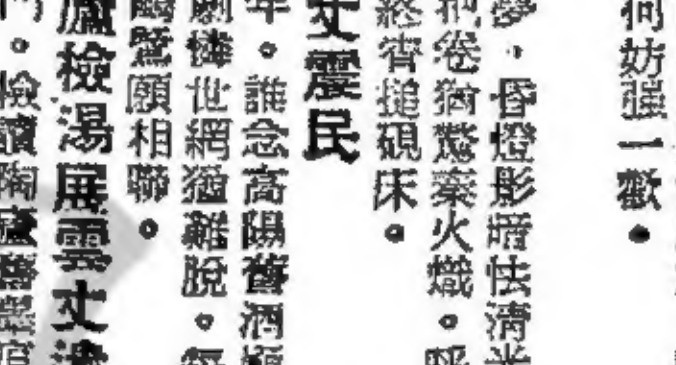 何妨強一歡。
夢，昏燈影暗怯清光
卷猶驚秦火熾。呼
終宵搥硯床。
丈震民
年。誰念高陽舊酒
劇憐世網猶難脫。每
鷗鷺願相聯。
廬檢湯展雲丈
檢讀陶廬